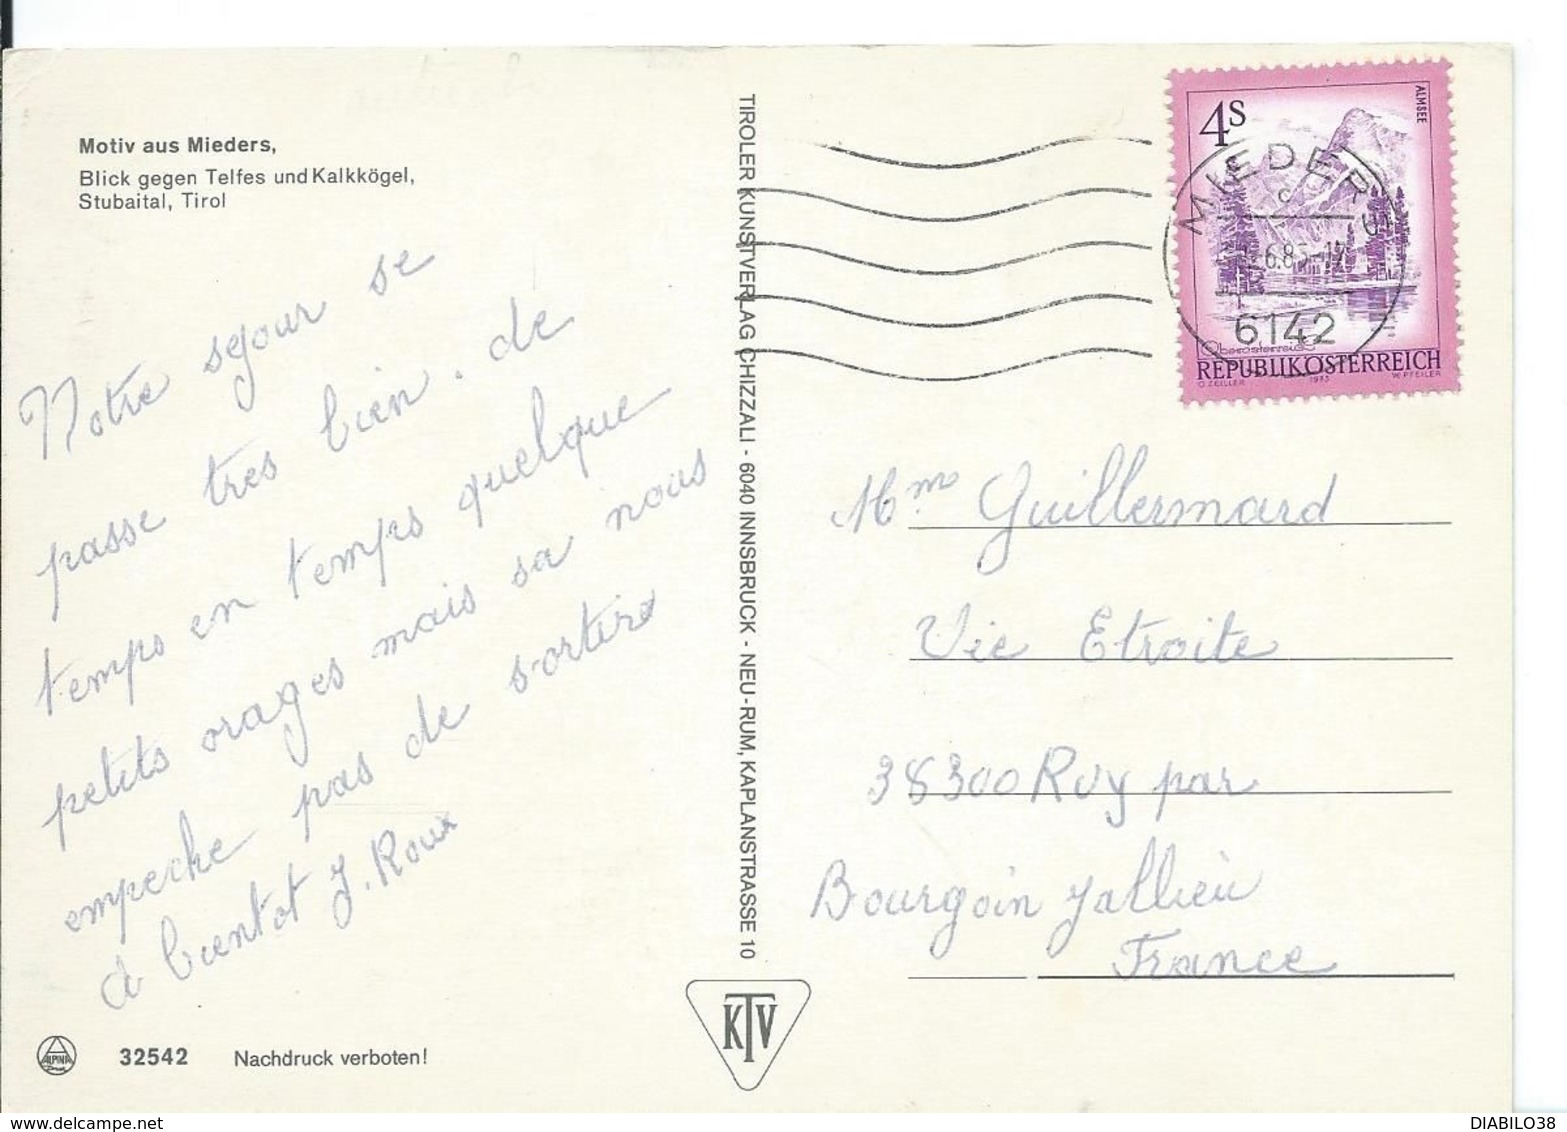 Motiv aus Mieders,
Blick gegen Telfes und Kalkkögel,
Stubaital, Tirol
Notre sejour se
passe tres bien. de
temps en temps quelque
petits orages mais sa nous
empeche pas de sortir
a bientot J. Roux
ALPINA
32542 Nachdruck verboten!
TIROLER KUNSTVERLAG CHIZZALI - 6040 INNSBRUCK - NEU-RUM, KAPLANSTRASSE 10
KTV
4S
ALMSEE
MIEDERS
6142
Oberösterreich
REPUBLIK ÖSTERREICH
O. ZEILLER 1973 W. PFEILER
Mme Guillermard
Vie Etroite
38300 Ruy par
Bourgoin Jallieu
France
DIABILO38